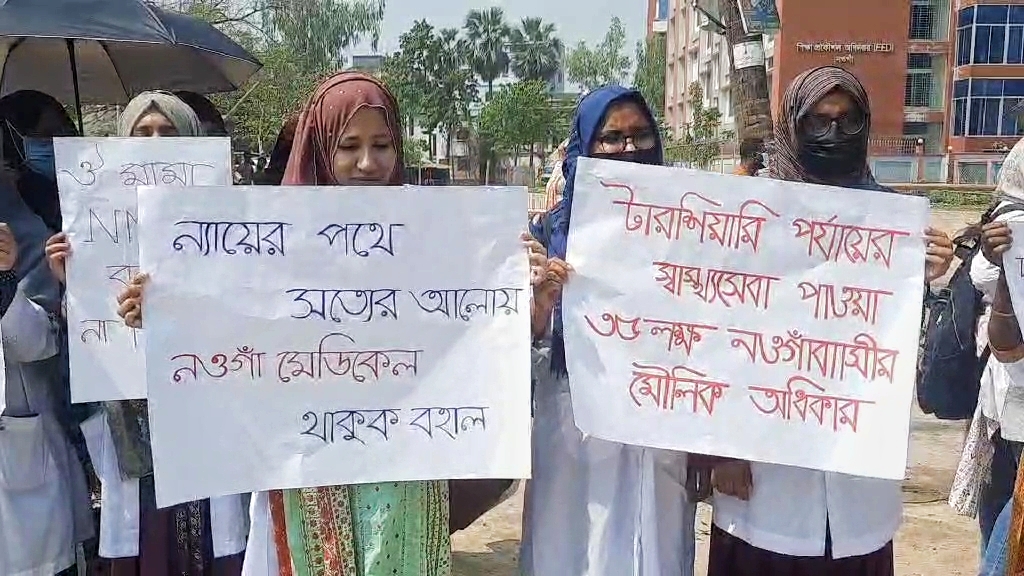 শিক্ষা প্রকৌশল অধিদপ্তর (EED)
ঐ মামা
ন্যায়ের পথে
সত্যের আলোয়
নওগাঁ মেডিকেল
থাকুক বহাল
টারশিয়ারি পর্যায়ের
স্বাস্থ্যসেবা পাওয়া
৩৫ লক্ষ নওগাঁবাসীর
মৌলিক অধিকার